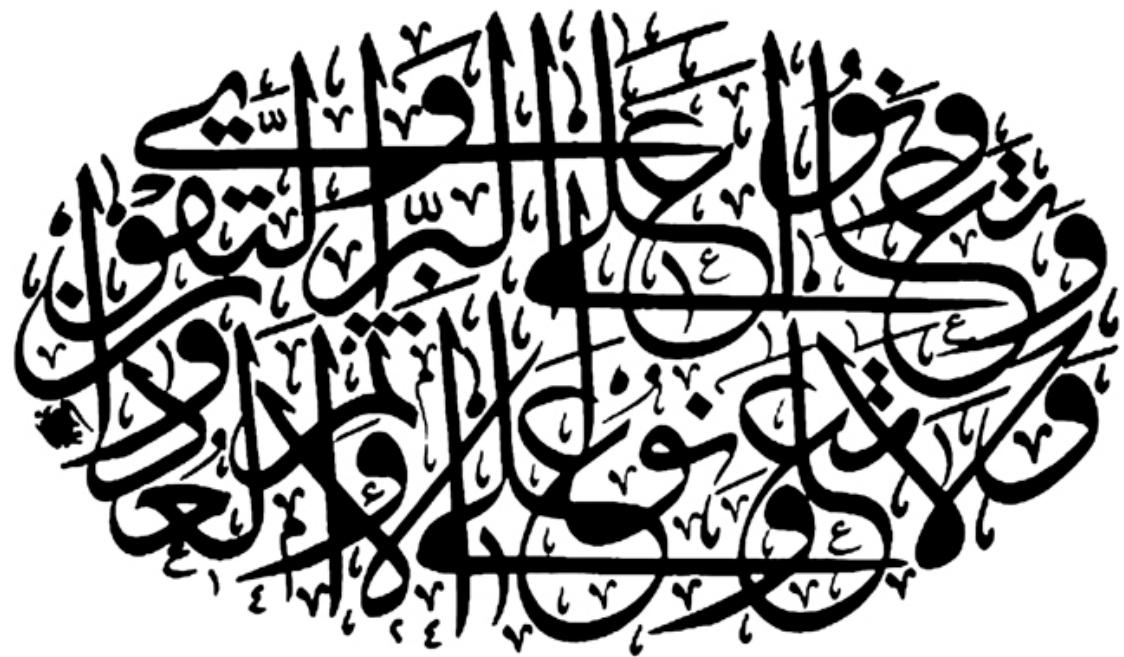 وتعاونوا على البر والتقوى
ولا تعاونوا على الاثم والعدوان